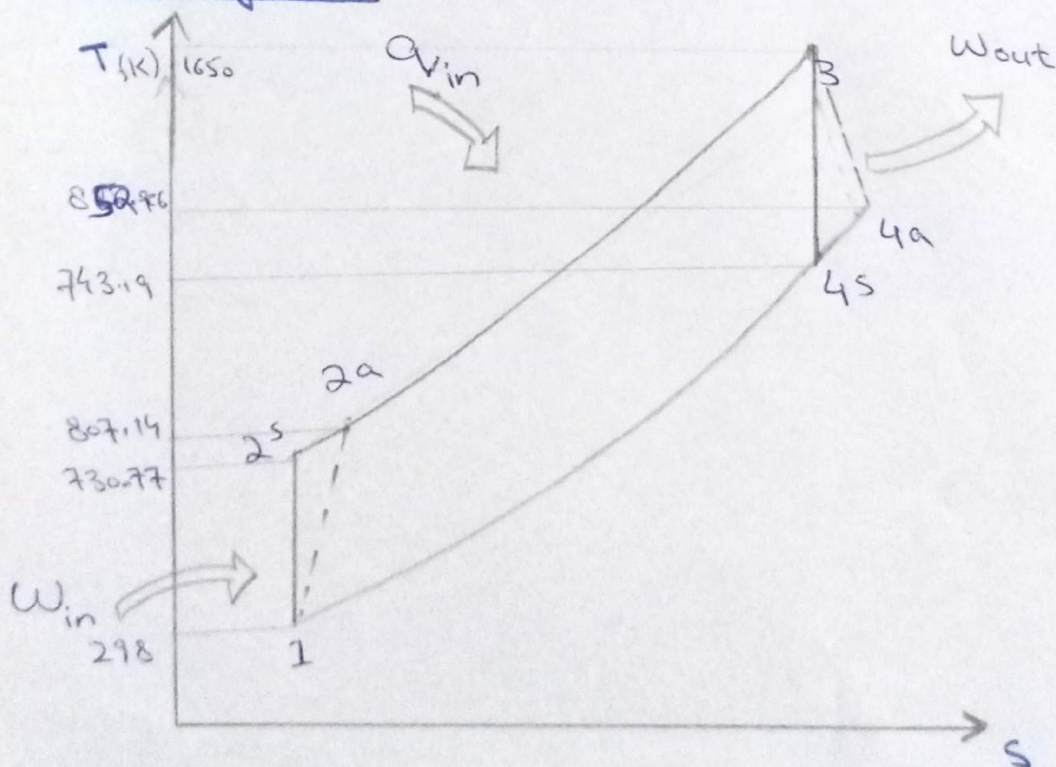 T(K) 1650
q in
Wout
3
4a
743.19
4s
2a
807.14
2s
730.77
Win
298
1
S